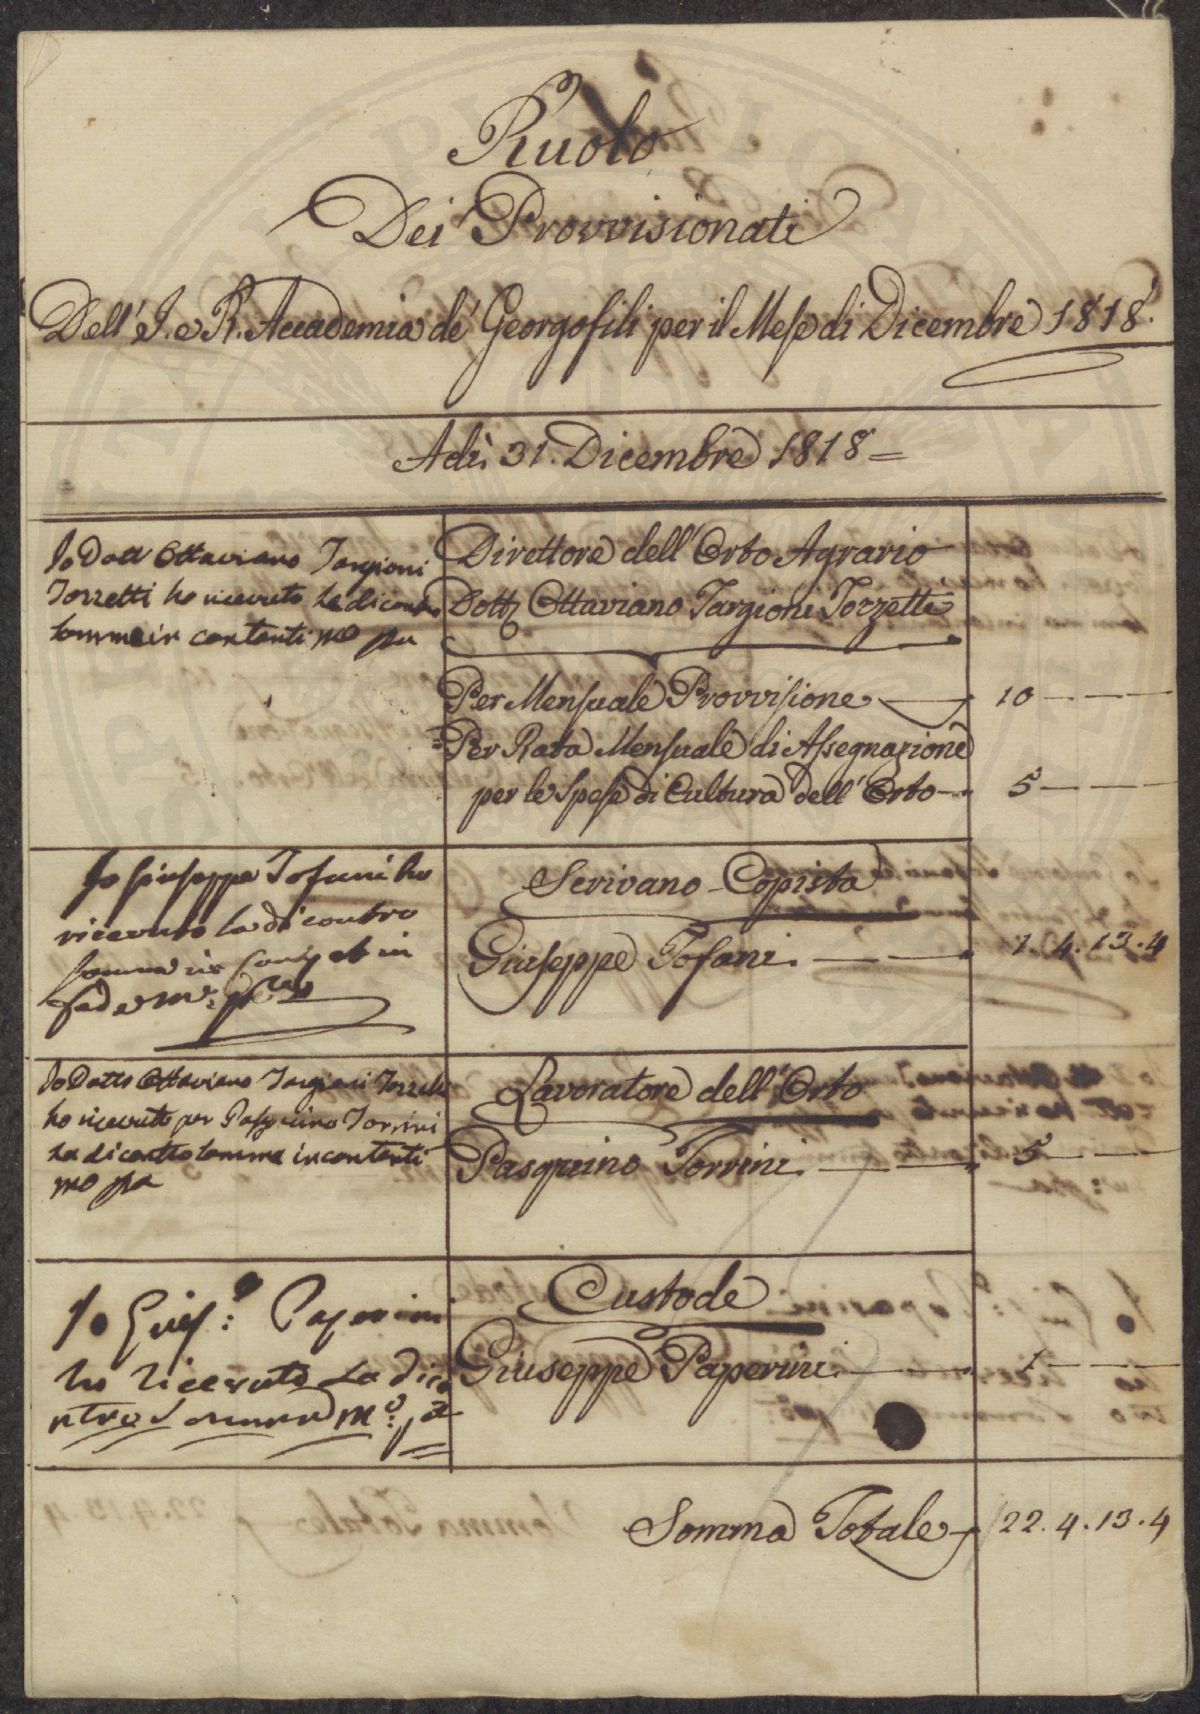 Ruolo
Dei Provvisionati
Dell' I. e R. Accademia de' Georgofili per il Mese di Dicembre 1818.
Adì 31. Dicembre 1818 =
Io Dott Ottaviano Targioni
Tozzetti ho ricevuto la dicontro
somma in contanti mo pa
Direttore dell' Orto Agrario
Dottr Ottaviano Targioni Tozzetti
Per Mensuale Provvisione — 10 — — —
Per Rata Mensuale di Assegnazione
per le Spese di Cultura dell' Orto — 5 — — —
Io Giuseppe Tofani ho
ricevuto la di contro
somma in
fede mo: pa
Scrivano Copista
Giuseppe Tofani. — — 1. 4. 13. 4
Io Dotto Ottaviano Targioni Tozzetti
ho ricevuto per Pasquino Torrini
la dicontro somma in contanti
mo pa
Lavoratore dell' Orto
Pasquino Torrini — — 5 — — —
Io Gius.e: Paperini
ho ricevuto la dico
ntro Somma mo: pa
Custode
Giuseppe Paperini. — — 1 — — —
Somma Totale 22. 4. 13. 4